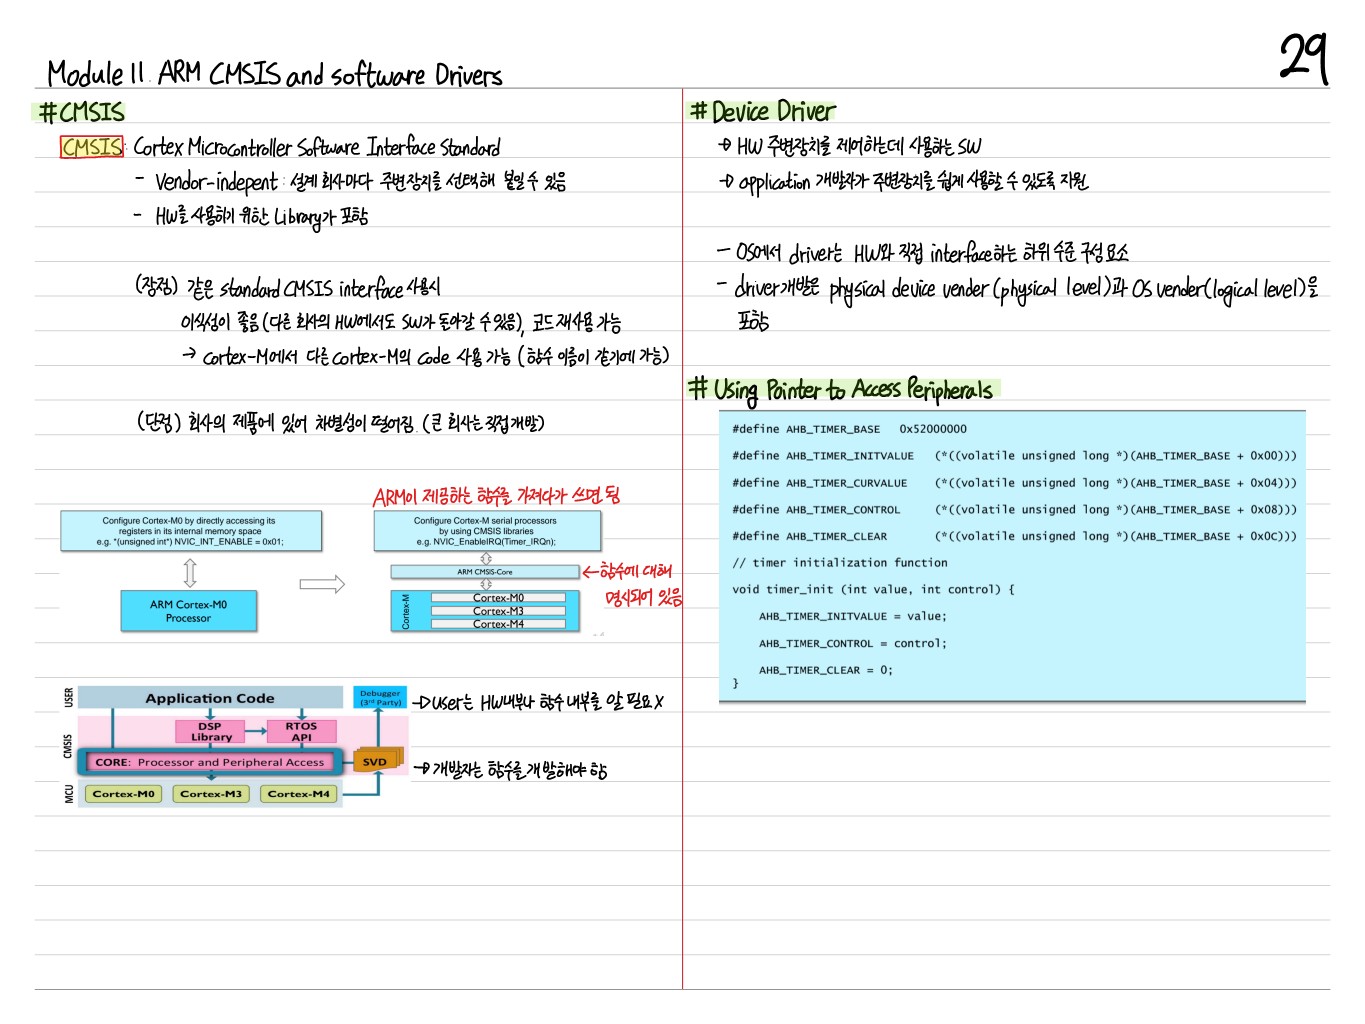 29
Module 11. ARM CMSIS and software Drivers
#CMSIS
CMSIS: Cortex Microcontroller Software Interface Standard
- Vendor-indepent : 설계 회사마다 주변장치를 선택해 붙일 수 있음
- HW를 사용하기 위한 Library가 포함
(장점) 같은 standard CMSIS interface 사용시
이식성이 좋음 (다른 회사의 HW에서도 SW가 돌아갈 수 있음), 코드 재사용 가능
→ Cortex-M에서 다른 Cortex-M의 code 사용 가능 (함수 이름이 같기에 가능)
(단점) 회사의 제품에 있어 차별성이 떨어짐. (큰 회사는 직접 개발)
ARM이 제공하는 함수를 가져다가 쓰면 됨
Configure Cortex-M0 by directly accessing its
registers in its internal memory space
e.g. "(unsigned int") NVIC_INT_ENABLE = 0x01;
ARM Cortex-M0
Processor
Configure Cortex-M serial processors
by using CMSIS libraries
e.g. NVIC_EnableIRQ(Timer_IRQn);
ARM CMSIS-Core
← 함수에 대해
명시되어 있음
Cortex-M
Cortex-M0
Cortex-M3
Cortex-M4
USER
Application Code
Debugger
(3rd Party)
→ User는 HW내부나 함수 내부를 알 필요 X
CMSIS
DSP
Library
RTOS
API
CORE: Processor and Peripheral Access
SVD
→ 개발자는 함수를 개발해야 함
MCU
Cortex-M0
Cortex-M3
Cortex-M4
# Device Driver
→ HW 주변장치를 제어하는데 사용하는 SW
→ application 개발자가 주변장치를 쉽게 사용할 수 있도록 지원
- OS에서 driver는 HW와 직접 interface하는 하위 수준 구성 요소
- driver개발은 physical device vender (physical level)과 OS vender(logical level)을
포함
# Using Pointer to Access Peripherals
#define AHB_TIMER_BASE 0x52000000
#define AHB_TIMER_INITVALUE (*((volatile unsigned long *)(AHB_TIMER_BASE + 0x00)))
#define AHB_TIMER_CURVALUE (*((volatile unsigned long *)(AHB_TIMER_BASE + 0x04)))
#define AHB_TIMER_CONTROL (*((volatile unsigned long *)(AHB_TIMER_BASE + 0x08)))
#define AHB_TIMER_CLEAR (*((volatile unsigned long *)(AHB_TIMER_BASE + 0x0C)))
// timer initialization function
void timer_init (int value, int control) {
AHB_TIMER_INITVALUE = value;
AHB_TIMER_CONTROL = control;
AHB_TIMER_CLEAR = 0;
}